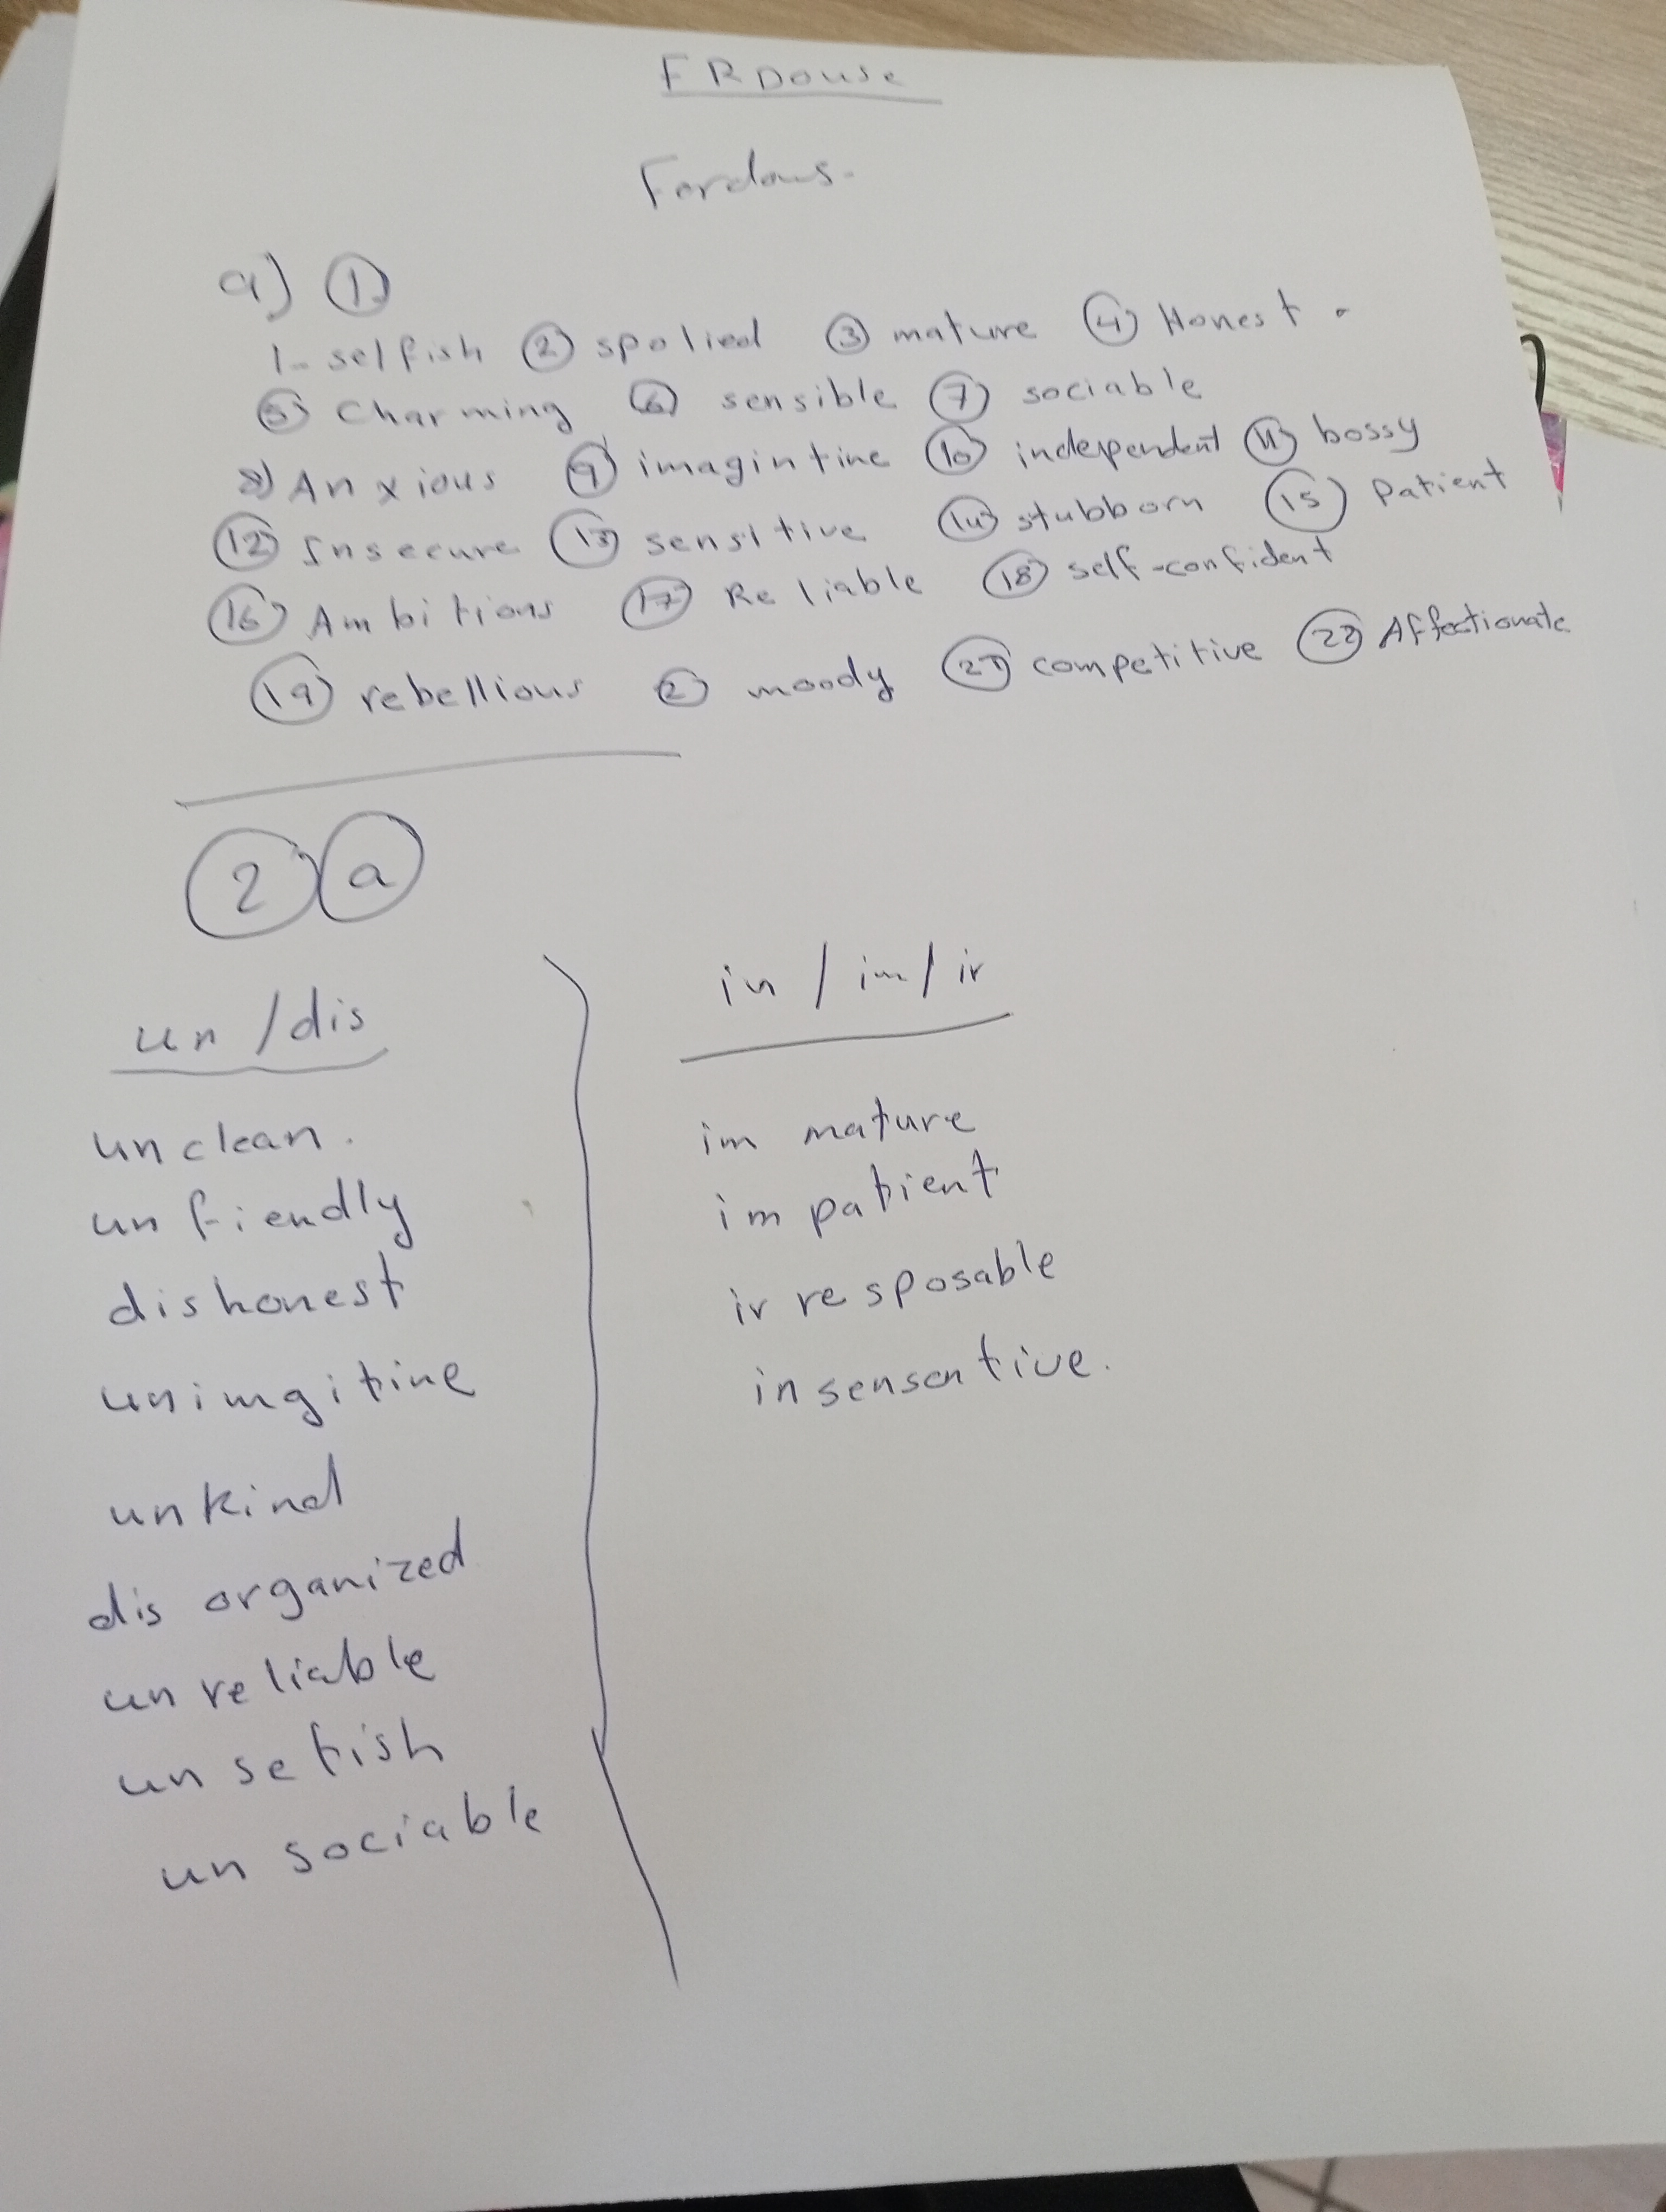 FRDouse
Ferdous.
a) 1
1- selfish 2 spolied 3 mature 4 Honest
5 Charming 6 sensible 7 sociable
8) Anxious 9 imagintine 10 independent 11 bossy
12 Insecure 13 sensitive 14 stubborn 15 Patient
16 Ambitions 17 Reliable 18 self-confident
19 rebellious 2 moody 21 competitive 22 Affectionate
2 a
un/dis
unclean.
unfiendly
dishonest
unimgitine
unkind
disorganized
unreliable
unsefish
unsociable
in/im/ir
immature
impatient
irresposable
insensentive.